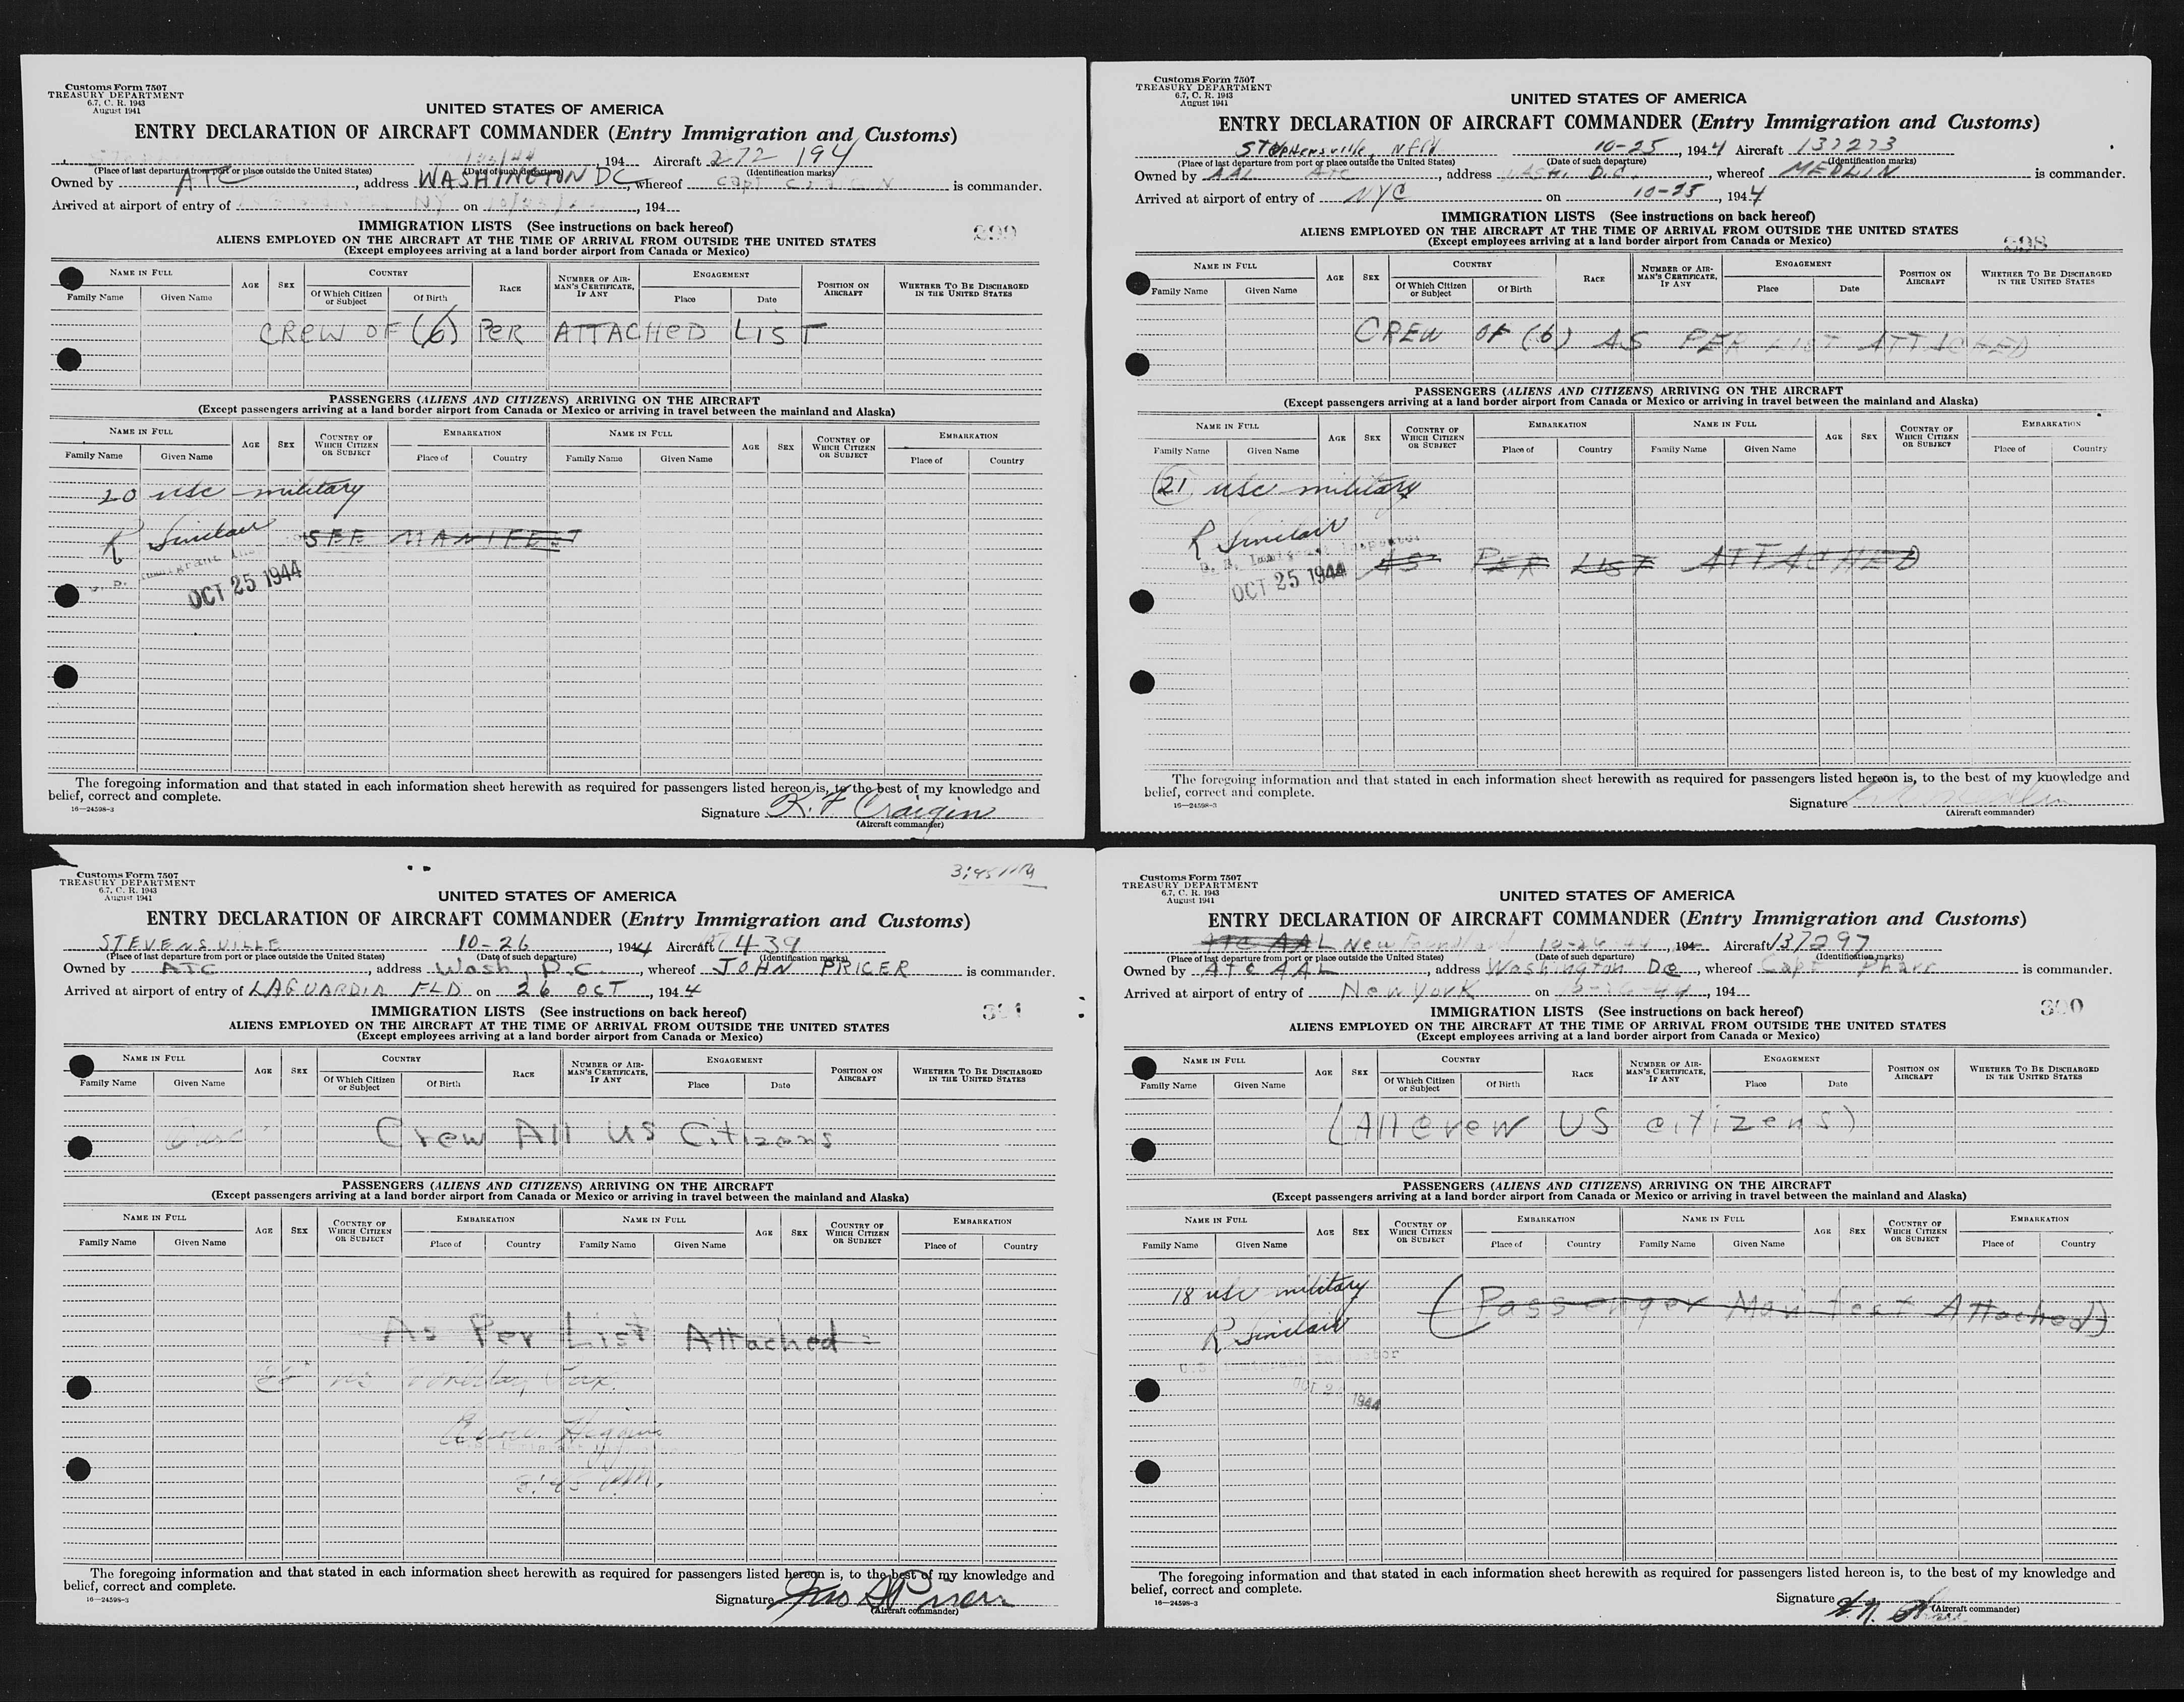 Customs Form 7507
TREASURY DEPARTMENT
6.7, C. R. 1943
August 1941
UNITED STATES OF AMERICA
ENTRY DECLARATION OF AIRCRAFT COMMANDER (Entry Immigration and Customs)
, 194 Aircraft 272 194
(Place of last departure from port or place outside the United States) (Date of such departure) (Identification marks)
Owned by ATC, address WASHINGTON DC, whereof Capt is commander.
Arrived at airport of entry of NY on , 194
IMMIGRATION LISTS (See instructions on back hereof)
ALIENS EMPLOYED ON THE AIRCRAFT AT THE TIME OF ARRIVAL FROM OUTSIDE THE UNITED STATES
(Except employees arriving at a land border airport from Canada or Mexico)
NAME IN FULL AGE SEX COUNTRY RACE NUMBER OF AIRMAN'S CERTIFICATE, IF ANY ENGAGEMENT POSITION ON AIRCRAFT WHETHER TO BE DISCHARGED IN THE UNITED STATES
Family Name Given Name Of Which Citizen or Subject Of Birth Place Date
CREW OF (6) PER ATTACHED LIST
PASSENGERS (ALIENS AND CITIZENS) ARRIVING ON THE AIRCRAFT
(Except passengers arriving at a land border airport from Canada or Mexico or arriving in travel between the mainland and Alaska)
NAME IN FULL AGE SEX COUNTRY OF WHICH CITIZEN OR SUBJECT EMBARKATION NAME IN FULL AGE SEX COUNTRY OF WHICH CITIZEN OR SUBJECT EMBARKATION
Family Name Given Name Place of Country Family Name Given Name Place of Country
20 usc military
R Sinclair SEE MANIFEST
OCT 25 1944
The foregoing information and that stated in each information sheet herewith as required for passengers listed hereon is, to the best of my knowledge and
belief, correct and complete.
16—24598-3
Signature K. F Craigin
(Aircraft commander)
Customs Form 7507
TREASURY DEPARTMENT
6.7, C. R. 1943
August 1941
UNITED STATES OF AMERICA
ENTRY DECLARATION OF AIRCRAFT COMMANDER (Entry Immigration and Customs)
Stephensville, NFLD 10-25, 1944 Aircraft 137273
(Place of last departure from port or place outside the United States) (Date of such departure) (Identification marks)
Owned by AAL ATC, address WASH. D.C., whereof MEDLIN is commander.
Arrived at airport of entry of NYC on 10-25, 1944
IMMIGRATION LISTS (See instructions on back hereof)
398
ALIENS EMPLOYED ON THE AIRCRAFT AT THE TIME OF ARRIVAL FROM OUTSIDE THE UNITED STATES
(Except employees arriving at a land border airport from Canada or Mexico)
NAME IN FULL AGE SEX COUNTRY RACE NUMBER OF AIRMAN'S CERTIFICATE, IF ANY ENGAGEMENT POSITION ON AIRCRAFT WHETHER TO BE DISCHARGED IN THE UNITED STATES
Family Name Given Name Of Which Citizen or Subject Of Birth Place Date
CREW OF (6) AS PER LIST ATTACHED
PASSENGERS (ALIENS AND CITIZENS) ARRIVING ON THE AIRCRAFT
(Except passengers arriving at a land border airport from Canada or Mexico or arriving in travel between the mainland and Alaska)
NAME IN FULL AGE SEX COUNTRY OF WHICH CITIZEN OR SUBJECT EMBARKATION NAME IN FULL AGE SEX COUNTRY OF WHICH CITIZEN OR SUBJECT EMBARKATION
Family Name Given Name Place of Country Family Name Given Name Place of Country
(21) usc military
R Sinclair
U. S. Immigrant Inspector
AS PER LIST ATTACHED
OCT 25 1944
The foregoing information and that stated in each information sheet herewith as required for passengers listed hereon is, to the best of my knowledge and
belief, correct and complete.
16—24598-3
Signature
(Aircraft commander)
3:45 PM
Customs Form 7507
TREASURY DEPARTMENT
6.7, C. R. 1943
August 1941
UNITED STATES OF AMERICA
ENTRY DECLARATION OF AIRCRAFT COMMANDER (Entry Immigration and Customs)
STEVENSVILLE 10-26, 1944 Aircraft 7439
(Place of last departure from port or place outside the United States) (Date of such departure) (Identification marks)
Owned by ATC, address Wash, D.C., whereof JOHN PRICER is commander.
Arrived at airport of entry of LAGUARDIA FLD on 26 OCT, 1944
IMMIGRATION LISTS (See instructions on back hereof)
ALIENS EMPLOYED ON THE AIRCRAFT AT THE TIME OF ARRIVAL FROM OUTSIDE THE UNITED STATES
(Except employees arriving at a land border airport from Canada or Mexico)
NAME IN FULL AGE SEX COUNTRY RACE NUMBER OF AIRMAN'S CERTIFICATE, IF ANY ENGAGEMENT POSITION ON AIRCRAFT WHETHER TO BE DISCHARGED IN THE UNITED STATES
Family Name Given Name Of Which Citizen or Subject Of Birth Place Date
Crew All US Citizens
PASSENGERS (ALIENS AND CITIZENS) ARRIVING ON THE AIRCRAFT
(Except passengers arriving at a land border airport from Canada or Mexico or arriving in travel between the mainland and Alaska)
NAME IN FULL AGE SEX COUNTRY OF WHICH CITIZEN OR SUBJECT EMBARKATION NAME IN FULL AGE SEX COUNTRY OF WHICH CITIZEN OR SUBJECT EMBARKATION
Family Name Given Name Place of Country Family Name Given Name Place of Country
As Per List Attached
3:45 PM.
The foregoing information and that stated in each information sheet herewith as required for passengers listed hereon is, to the best of my knowledge and
belief, correct and complete.
16—24598-3
Signature
(Aircraft commander)
Customs Form 7507
TREASURY DEPARTMENT
6.7, C. R. 1943
August 1941
UNITED STATES OF AMERICA
ENTRY DECLARATION OF AIRCRAFT COMMANDER (Entry Immigration and Customs)
ATC AAL Newfoundland 10-26-44, 194 Aircraft 137297
(Place of last departure from port or place outside the United States) (Date of such departure) (Identification marks)
Owned by ATC AAL, address Washington DC, whereof Capt Pharr is commander.
Arrived at airport of entry of New York on 10-26-44, 194
IMMIGRATION LISTS (See instructions on back hereof)
ALIENS EMPLOYED ON THE AIRCRAFT AT THE TIME OF ARRIVAL FROM OUTSIDE THE UNITED STATES
(Except employees arriving at a land border airport from Canada or Mexico)
NAME IN FULL AGE SEX COUNTRY RACE NUMBER OF AIRMAN'S CERTIFICATE, IF ANY ENGAGEMENT POSITION ON AIRCRAFT WHETHER TO BE DISCHARGED IN THE UNITED STATES
Family Name Given Name Of Which Citizen or Subject Of Birth Place Date
(All crew US citizens)
PASSENGERS (ALIENS AND CITIZENS) ARRIVING ON THE AIRCRAFT
(Except passengers arriving at a land border airport from Canada or Mexico or arriving in travel between the mainland and Alaska)
NAME IN FULL AGE SEX COUNTRY OF WHICH CITIZEN OR SUBJECT EMBARKATION NAME IN FULL AGE SEX COUNTRY OF WHICH CITIZEN OR SUBJECT EMBARKATION
Family Name Given Name Place of Country Family Name Given Name Place of Country
18 usc military (Passenger Manifest Attached)
R Sinclair
1944
The foregoing information and that stated in each information sheet herewith as required for passengers listed hereon is, to the best of my knowledge and
belief, correct and complete.
16—24598-3
Signature
(Aircraft commander)